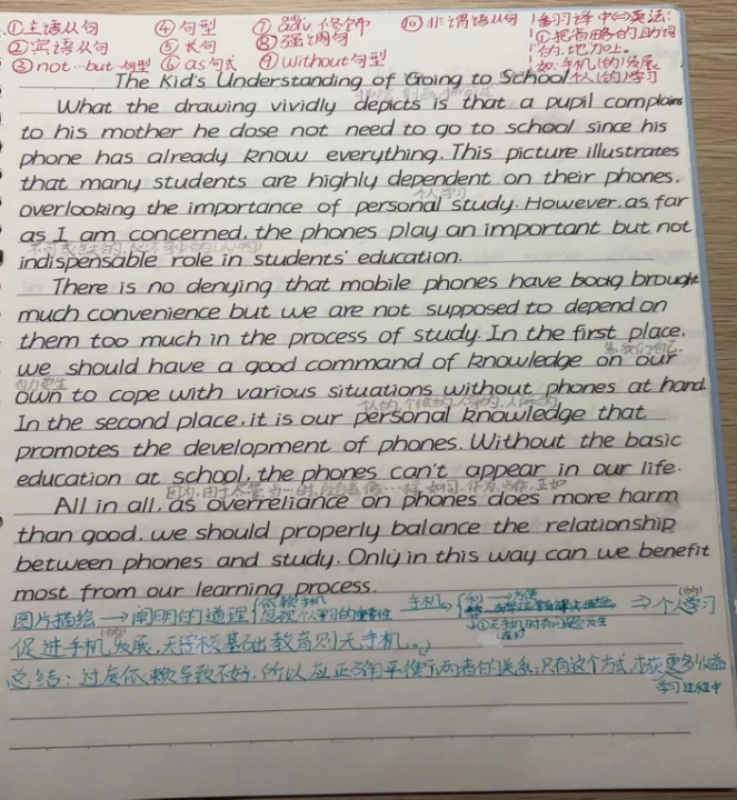 ①主语从句 ④句型 ⑦adv.修饰 ⑩非谓语从句 翻译中⇔英法:
②宾语从句 ⑤长句 ⑧强调句 ①把省略的助词
③not…but…句型 ⑥as句式 ⑨without句型 的.地加上。
如:手机(的)发展
The Kid's Understanding of Going to School 个人(的)学习
What the drawing vividly depicts is that a pupil complains
to his mother he dose not need to go to school since his
phone has already know everything. This picture illustrates
that many students are highly dependent on their phones.
个人学习
overlooking the importance of personal study. However, as far
as I am concerned, the phones play an important but not
indispensable role in students' education.
There is no denying that mobile phones have brought
much convenience but we are not supposed to depend on
them too much in the process of study. In the first place,
we should have a good command of knowledge on our
自力更生
own to cope with various situations without phones at hand.
In the second place, it is our personal knowledge that
promotes the development of phones. Without the basic
education at school, the phones can't appear in our life.
All in all, as overreliance on phones does more harm
than good, we should properly balance the relationship
between phones and study. Only in this way can we benefit
most from our learning process.
图片描绘→阐明的道理 依赖手机 手机 ⇒个人(的)学习
忽视个人学习的重要性
促进手机(的)发展,无学校基础教育则无手机。
总结:过度依赖导致不好,所以应正确平衡两者的关系;只有这个方式,才能更多收益
学习过程中